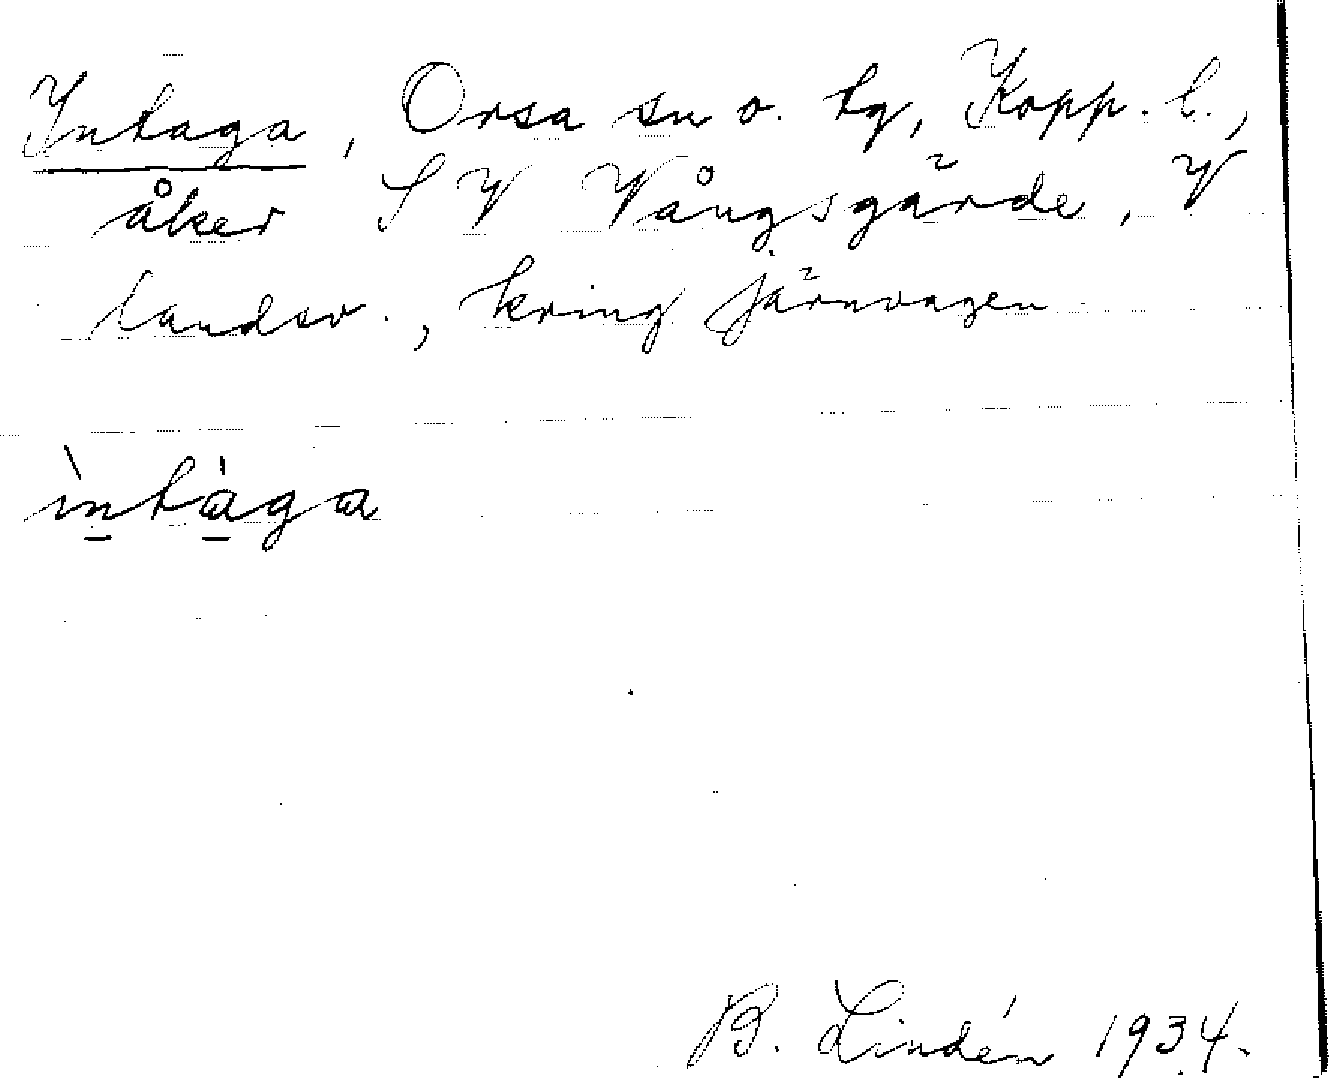 Intaga, Orsa sn o. tg, Kopp. l.,
åker SV Vångsgärde, V
landsv., kring järnvagen
ìntàga
B. Lindén 1934.